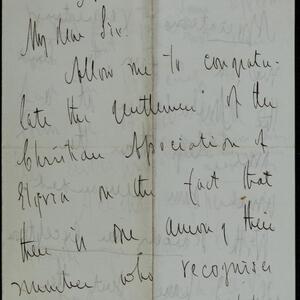 My dear Sir:
Allow me to congratu-
late the gentlemen of the
Christian Association of
Elyria on the fact that
there is one among their
number who recognises